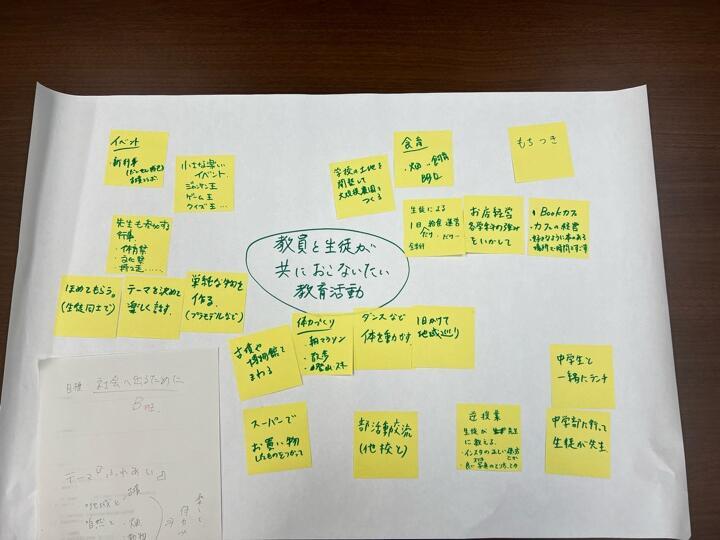 イベント
・新行事
小さな楽しい
イベント.
ジャンケン王
ゲーム王
クイズ王…
先生も参加する
行事
・体育祭
・文化祭
ほめてもらう。
(生徒同士で)
テーマを決めて
楽しく話す.
単純な物を
作る.
(プラモデルなど)
学校の土地を
開墾して
大規模農園を
つくる
食育
・畑
もちつき
生徒による
1日
給食
運営
お店経営
各学科の強み
をいかして
Bookカフェ
・カフェの経営
・好きなように本のある
場所で時間をすごす
教員と生徒が
共におこないたい
教育活動
古墳や
博物館を
まわる
体力づくり
・朝マラソン
・散歩
・登山
ダンスなど
体を動かす
1日かけて
地域巡り
スーパーで
お買い物
したものをつかって
部活動交流
(他校と)
逆授業
生徒が
先生
に教える.
・インスタの正しい使い方
とか
・良い写真のとり方とか
中学生と
一緒にランチ
中学部に行って
生徒が先生
目標
社会へ出るために
テーマ『ふれあい』
・地域と
・自然と
・畑
・動物